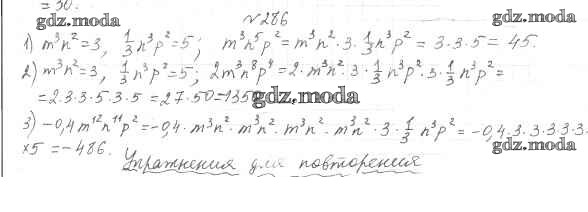 = 30.
gdz.moda
№286
gdz.moda
1) m³n²=3, 1/3 n³p²=5; m³n⁵p²=m³n²·3·1/3 n³p² = 3·3·5 = 45.
2) m³n²=3, 1/3 n³p²=5; 2m³n⁸p⁴=2·m³n²·3·1/3 n³p²·3·1/3 n³p²=
=2·3·3·5·3·5 = 27·50=1350
gdz.moda
3) -0,4m¹²n¹¹p²=-0,4·m³n²·m³n²·m³n²·m³n²·3·1/3 n³p² = -0,4·3·3·3·3·3·
×5 = -486.
gdz.moda
Упражнения для повторения